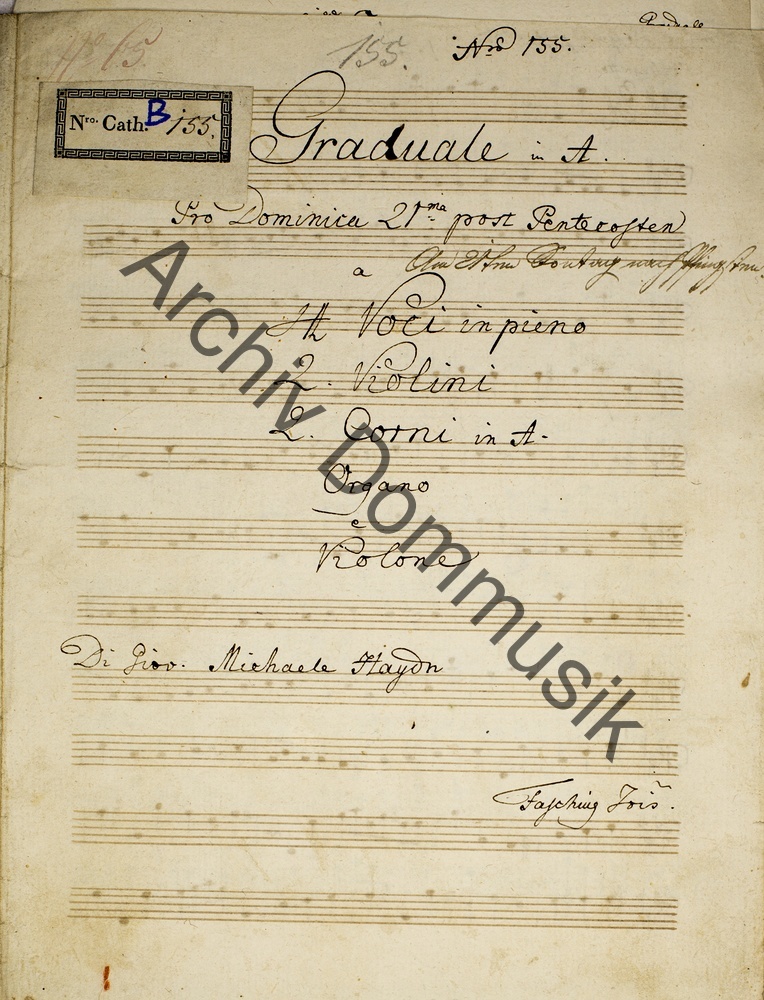 No 65.
155.
Nro 155.
Nro. Cath. B 155.
Graduale in A.
Pro Dominica 21ma post Pentecosten
Am 21ten Sontag nach Pfingsten.
a
4 Voci in pieno
2. Violini
2. Corni in A.
Organo
e
Violone
Di Giov. Michaele Haydn
Fasching Jois.
Archiv Dommusik